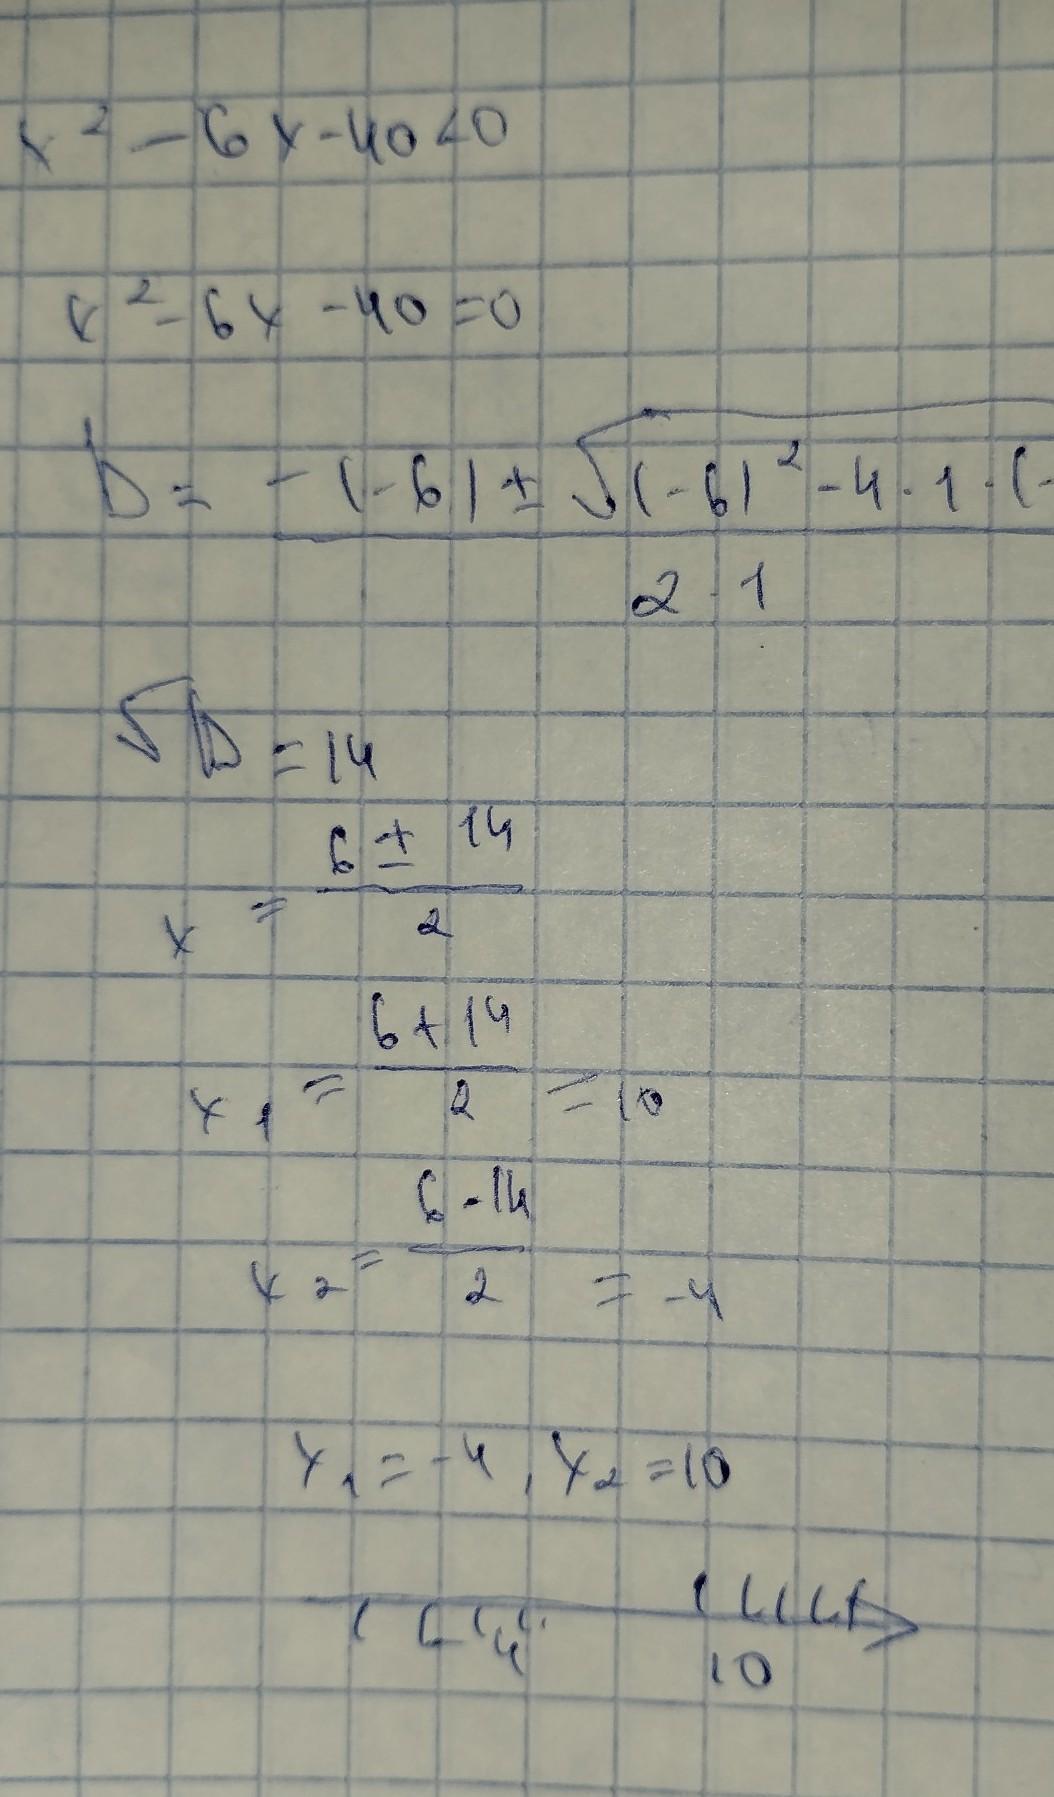 x² - 6x - 40 < 0
x² - 6x - 40 = 0
D = -(-6) ± √(-6)² - 4 · 1 · (-
2 · 1
√D = 14
x = 6 ± 14 / 2
x₁ = 6 + 14 / 2 = 10
x₂ = 6 - 14 / 2 = -4
x₁ = -4, x₂ = 10
4
10